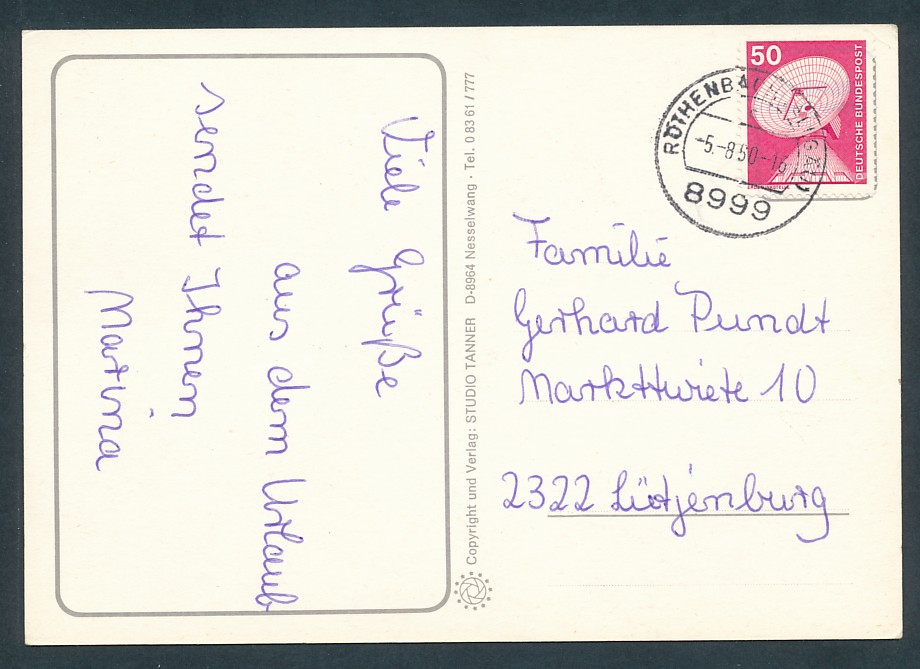 Viele Grüße
aus dem Urlaub
sendet Ihnen
Martina
Copyright und Verlag: STUDIO TANNER D-8964 Nesselwang · Tel. 0 83 61 / 777
50
DEUTSCHE BUNDESPOST
-5.-8.
8999
Familie
Gerhard Pundt
Markttwiete 10
2322 Lütjenburg